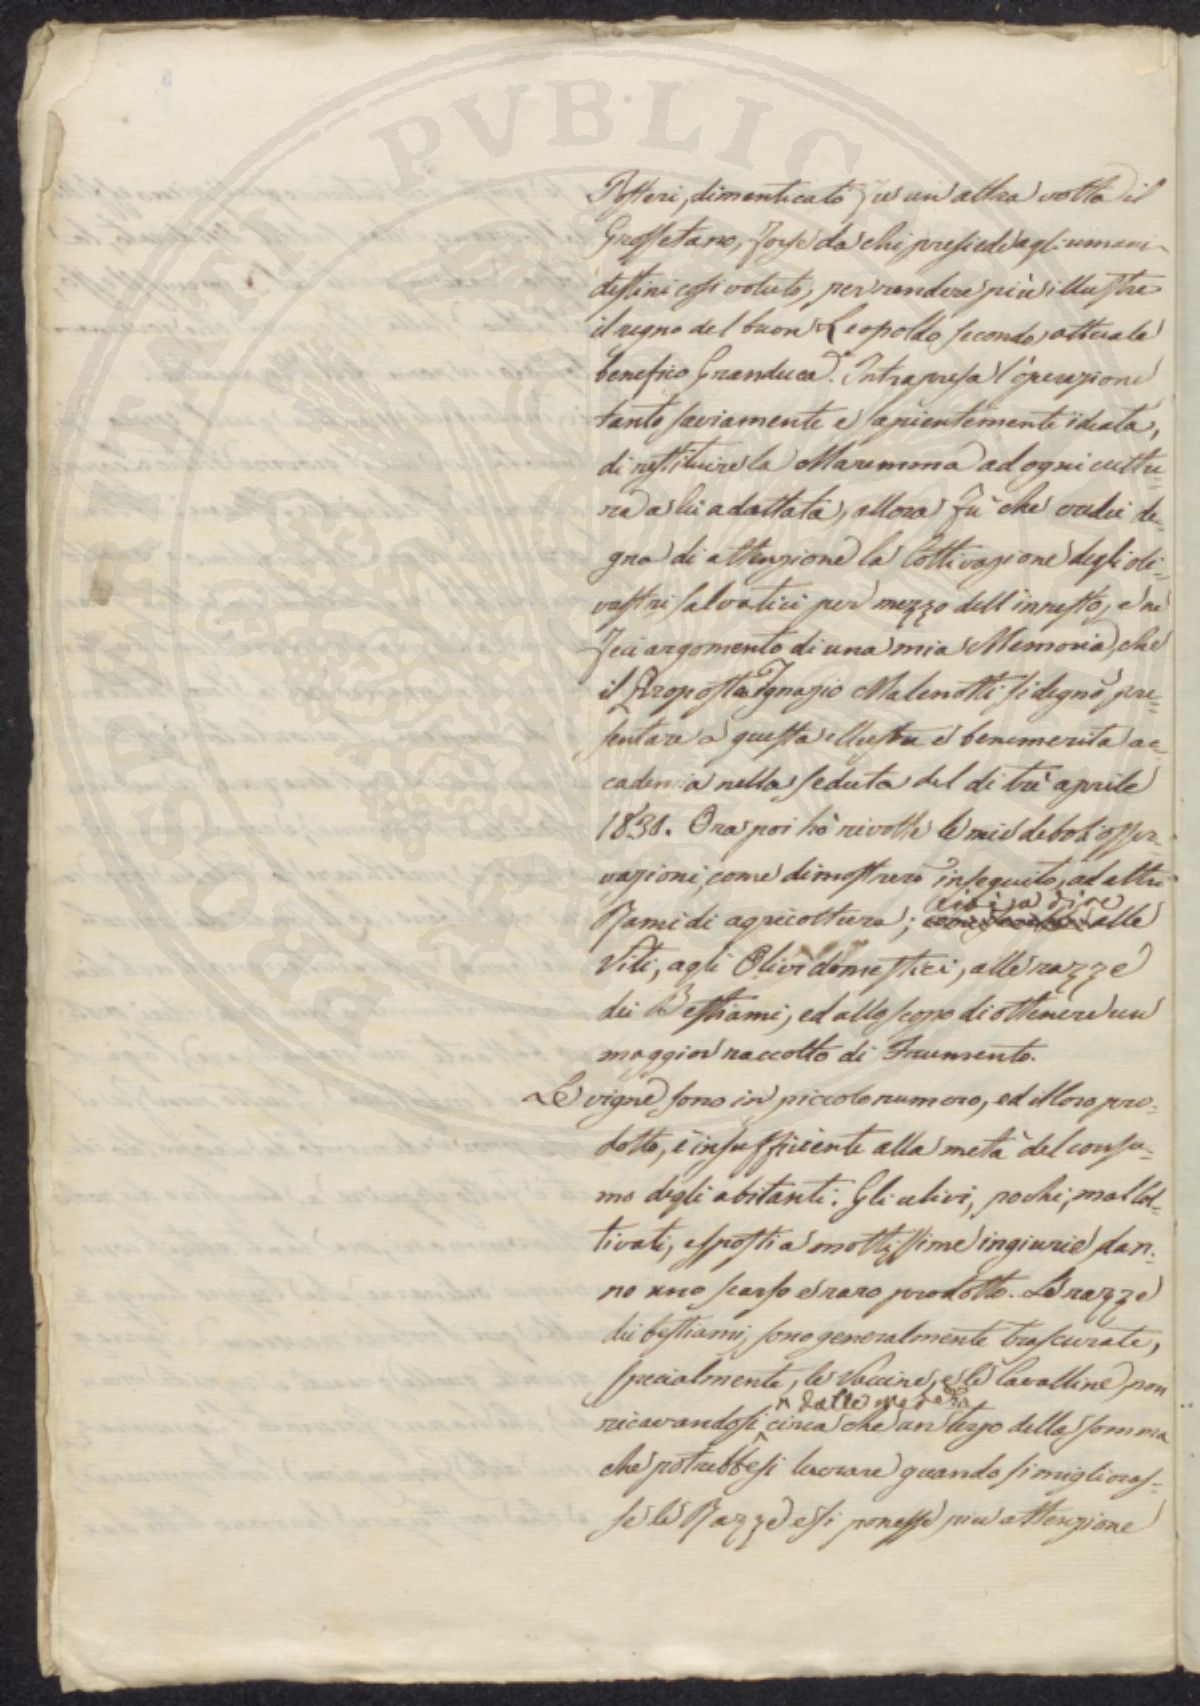 PVBLIC
Posteri, dimenticato fu un'altra volta il
Grossetano, forse da chi presiede agli umani
destini così voluto, per rendere più illustre
il regno del buon Leopoldo secondo attuale
benefico Granduca. Intrapresa l'operazione
tanto saviamente e sapientemente ideata,
di restituire la Maremma ad ogni cultu
ra a lei adattata, allora fù che credei de-
gna di attenzione la Coltivazione degli oli-
vastri salvatici per mezzo dell'innesto, e ne
feci argomento di una mia Memoria, che
il Proposto Ignazio Malenotti si degnò pre-
sentare a questa illustre e benemerita ac-
cademia nella seduta del dì trè aprile
1831. Ora poi hò rivolte le mie deboli osser-
vazioni, come dimostrerò in seguito, ad altri
cioè a dire
Rami di agricoltura; alle
Viti, agli Olivi domestici, alle razze
dei Bestiami, ed allo scopo di ottenere un
maggior raccolto di Frumento.
Le vigne sono in piccolo numero, ed il loro pro-
dotto, è insufficiente alla metà del consu-
mo degli abitanti. Gli ulivi, pochi, mal Col-
tivati, esposti a moltissime ingiurie dan-
no uno scarso e raro prodotto. Le razze
dei bestiami, sono generalmente trascurate,
specialmente, le Vaccine, e le Cavalline, non
dalle medesime
ricavandosi circa che un terzo della somma
che potrebbesi lucrare quando si miglioras-
se le Razze e si ponesse più attenzione